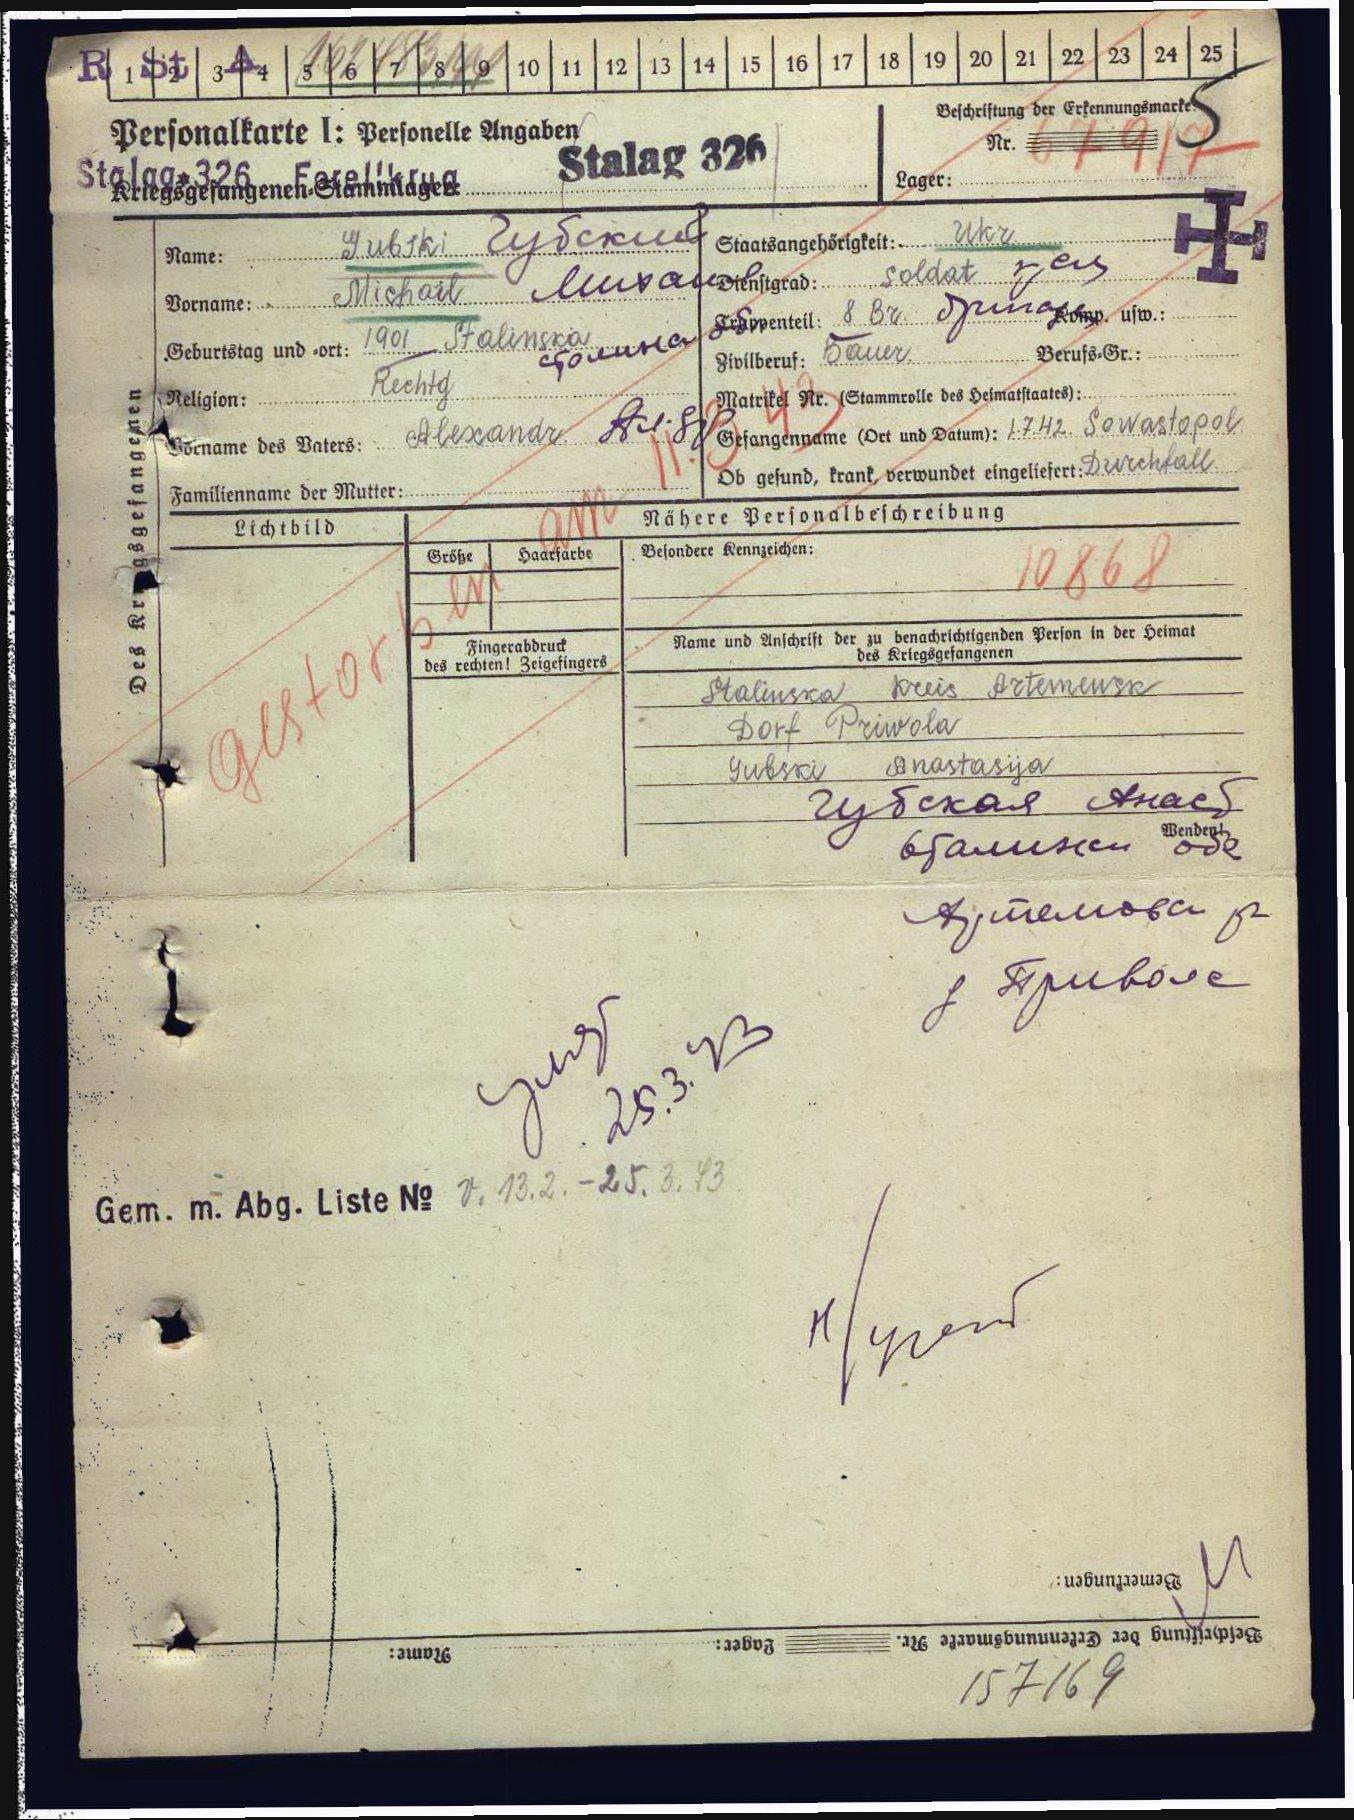 R St A
1 2 3 4 5 6 7 8 9 10 11 12 13 14 15 16 17 18 19 20 21 22 23 24 25
Personalkarte I: Personelle Angaben
Stalag 326
Stalag 326 Forellkrug
Kriegsgefangenen-Stammlager:
Beschriftung der Erkennungsmarke
Nr. 67917
5
Lager:
Des Kriegsgefangenen
Name: Gubski Губский
Vorname: Michail Михаил
Geburtstag und -ort: 1901 Stalinska
Religion: Rechtg
Vorname des Vaters: Alexandr
Familienname der Mutter:
Staatsangehörigkeit: Ukr
Dienstgrad: Soldat
Truppenteil: 8 Br. Komp. usw.:
Zivilberuf: Bauer Berufs-Gr.:
Matrikel Nr. (Stammrolle des Heimatstaates):
Gefangenname (Ort und Datum): 1.7.42 Sewastopol
Ob gesund, krank, verwundet eingeliefert: Durchfall
gestorben am 11.3.43
Lichtbild
Nähere Personalbeschreibung
Größe Haarfarbe
Besondere Kennzeichen:
10868
Fingerabdruck
des rechten! Zeigefingers
Name und Anschrift der zu benachrichtigenden Person in der Heimat
des Kriegsgefangenen
Stalinska Kreis Artemewsk
Dorf Priwola
Gubski Anastasija
Губская Анаст
Wenden!
Сталинск обл
Артемовск р
д Приволе
25.3.43
Gem. m. Abg. Liste № v. 13.2.-25.3.43
Bemerkungen:
Beschriftung der Erkennungsmarke Nr. Lager: Name:
157169